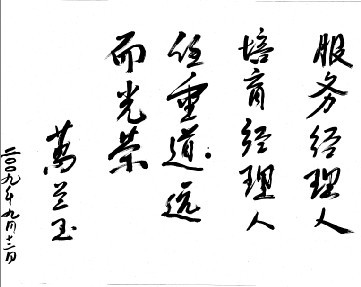 服务经理人
培育经理人
任重道远
而光荣
万兰玉
二〇〇九年九月十二日